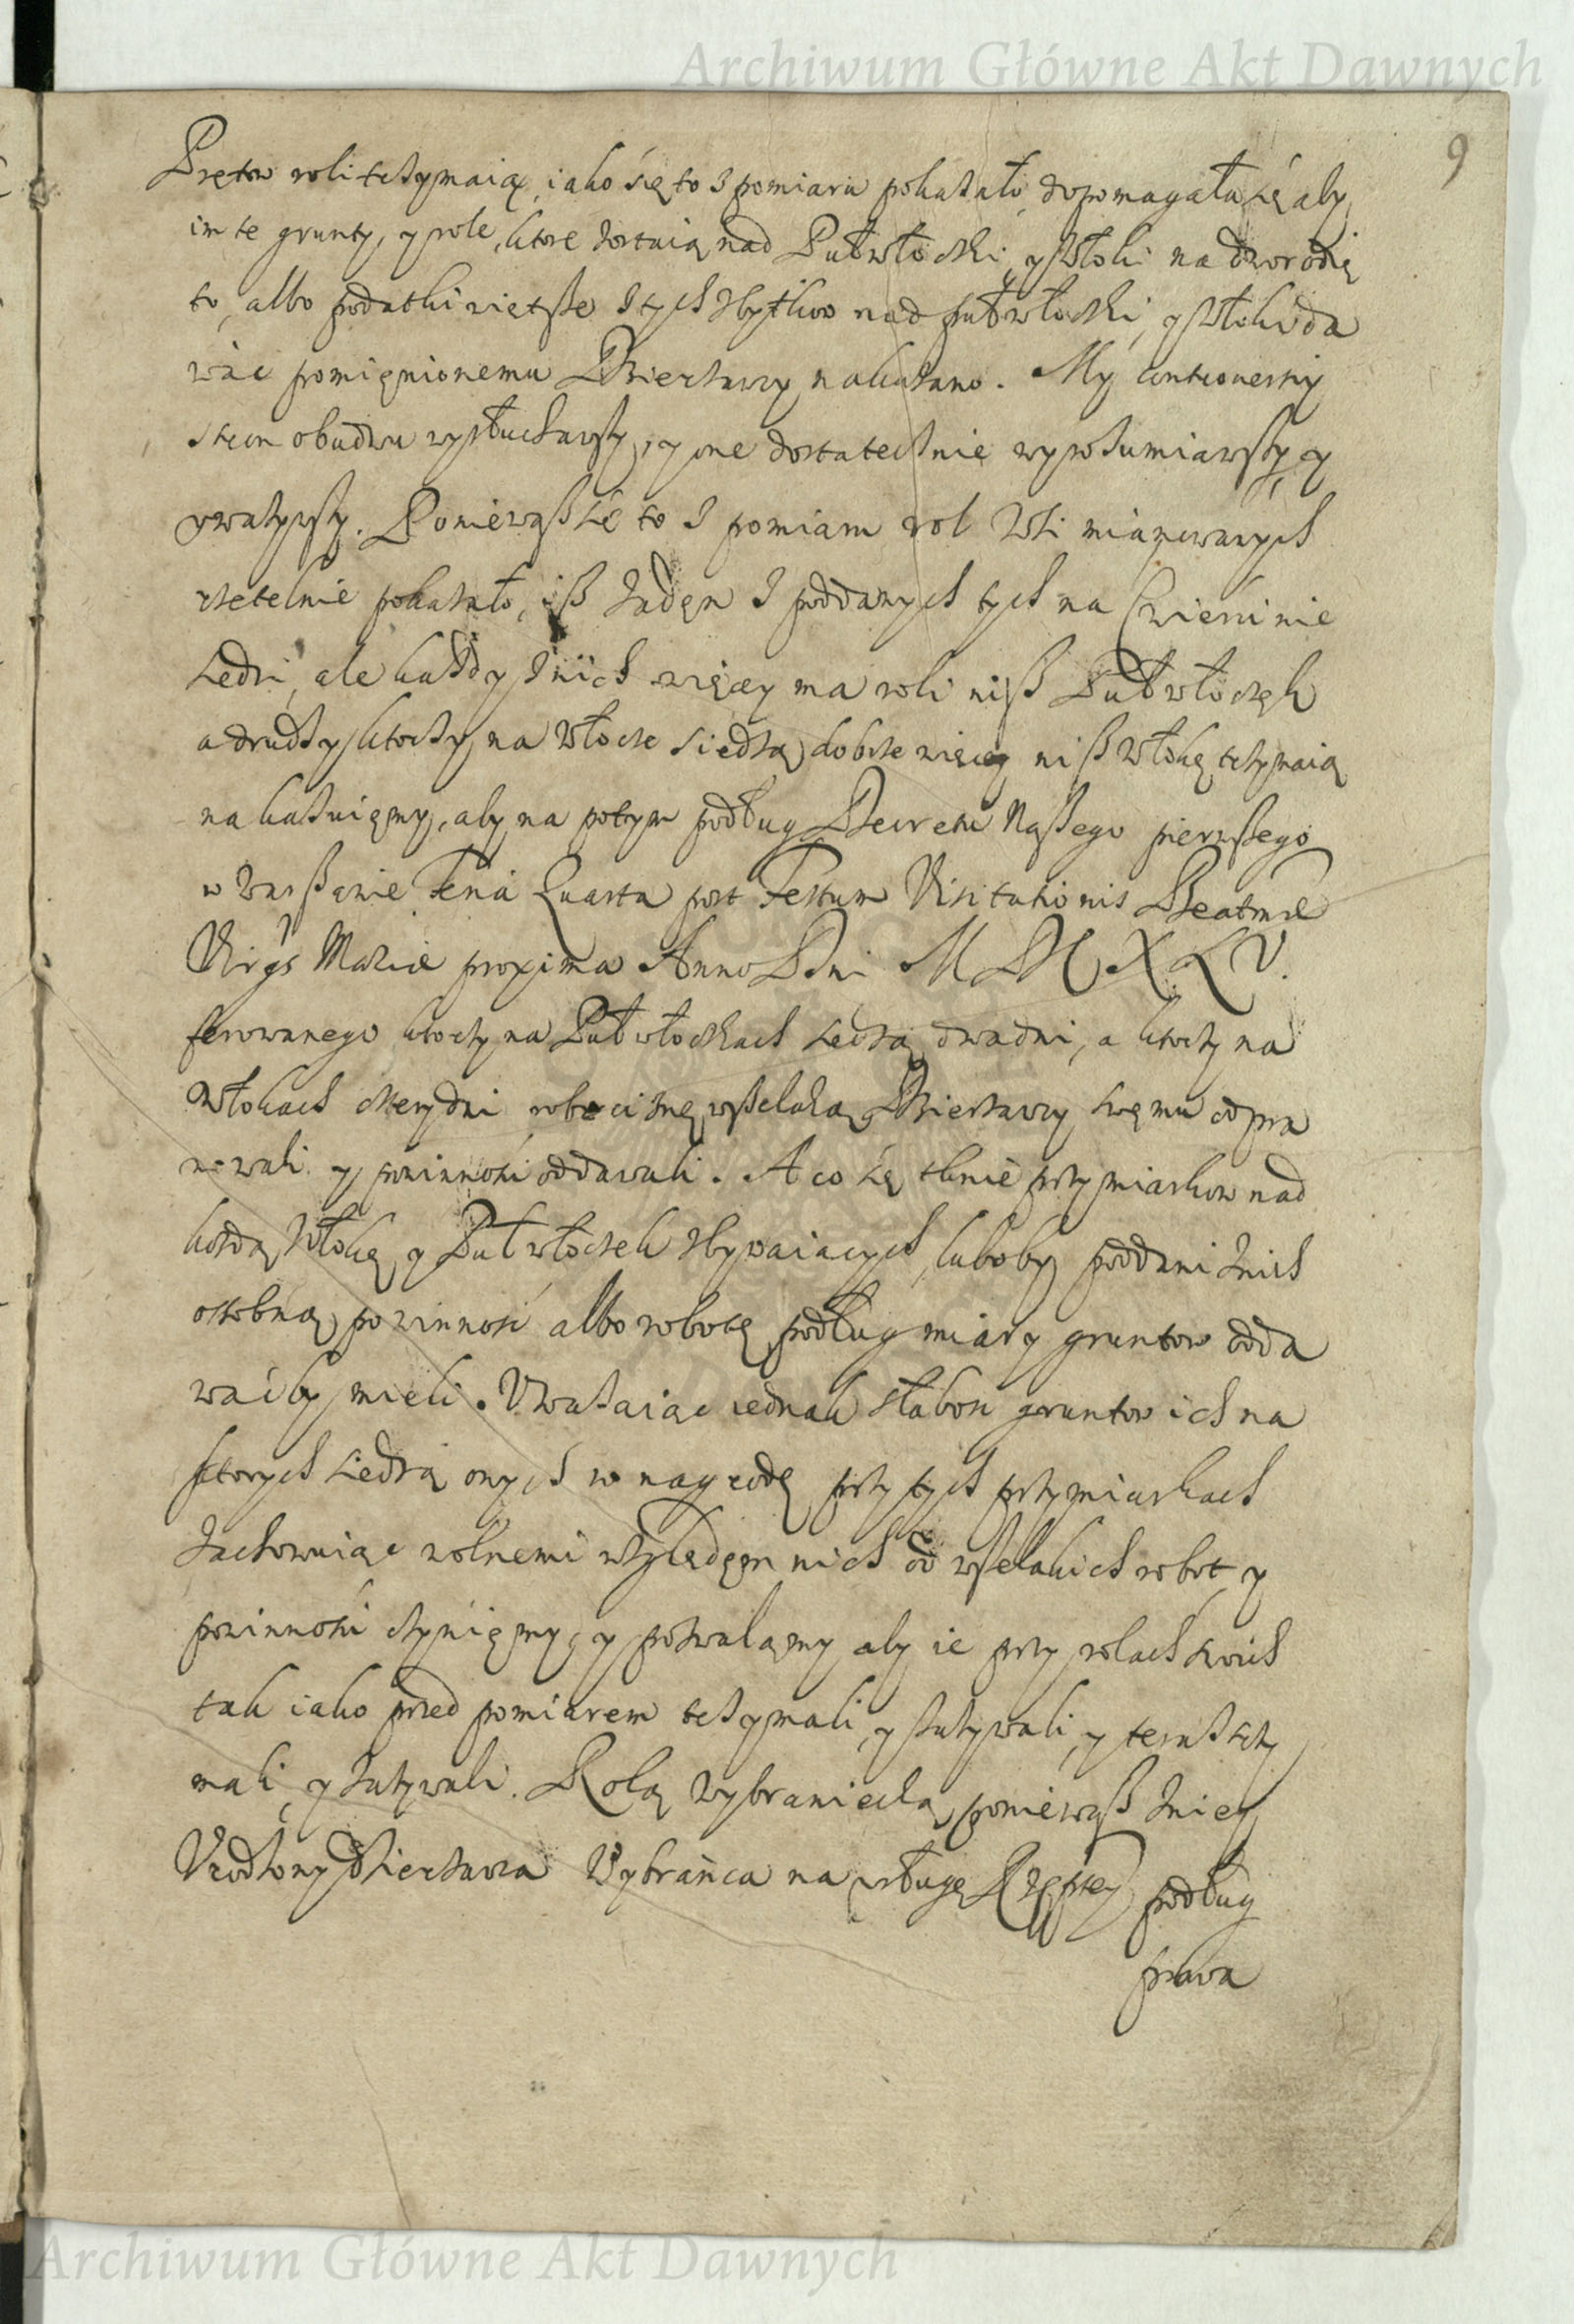 Archiwum Główne Akt Dawnych
9
Prętow roli trzymaią, iako się to z pomiaru pokazało, dopomagała się aby
im te grunty, y role, ktore zostaią nad Pułwłoczki, y Włoki na dwor odię
to, albo podatki większe z tych zbytkow nad pułwłoczki, y Włoki da
wać pomięnionemu Dzierzawcy nakazano. My controversiy
stron obudwu wysłuchawszy, y one dostatecznie wyrozumiawszy, y
uważywszy. Ponieważ się to z pomiaru rol Wsi mianowanych
rzetelnie pokazało, isz zadęn z poddanych tych na Cwierci nie
siedzi, ale kazdy z nich więcey ma roli nisz Pułwłoczek
a drudzy ktorzy na Włoce siedzą dobrze więcey nisz Włokę trzymaią
nakazuięmy, aby na potym podług Decretu Naszego pierwszego
w Warszawie Feria Quarta post Festum Visitationis Beatmae
Virgs Mariae proxima Anno Dni M D C X L V.
ferowanego ktorzy na Pułwłoczkach siedzą dwa dni, a ktorzy na
Włokach cztery dni robociznę wszelaką Dzierzawcy swemu odpra
wowali y powinności oddawali. A co się tknie przymiarkow nad
kozdą Włokę y Pułwłoczek zbywaiących, luboby poddani z nich
osobną powinność albo robotę podług miary gruntow odda
wać by mieli. Uwazaiąc iednak słabość gruntow ich na
ktorych siedzą onych w nagrodę przy tych przymiarkach
zachowuiąc wolnemi względęm nich od wszelakich robot y
powinności czynięmy, y pozwalamy aby ie przy rolach swoich
tak iako przed pomiarem trzymali, y zazywali, y teraz trzy
mali, y zazywali. Rolą Wybraniecką ponieważ z niey
Urodzony Dzierzawca Wybrańca na usługę Rzeptey podług
prawa
Archiwum Główne Akt Dawnych